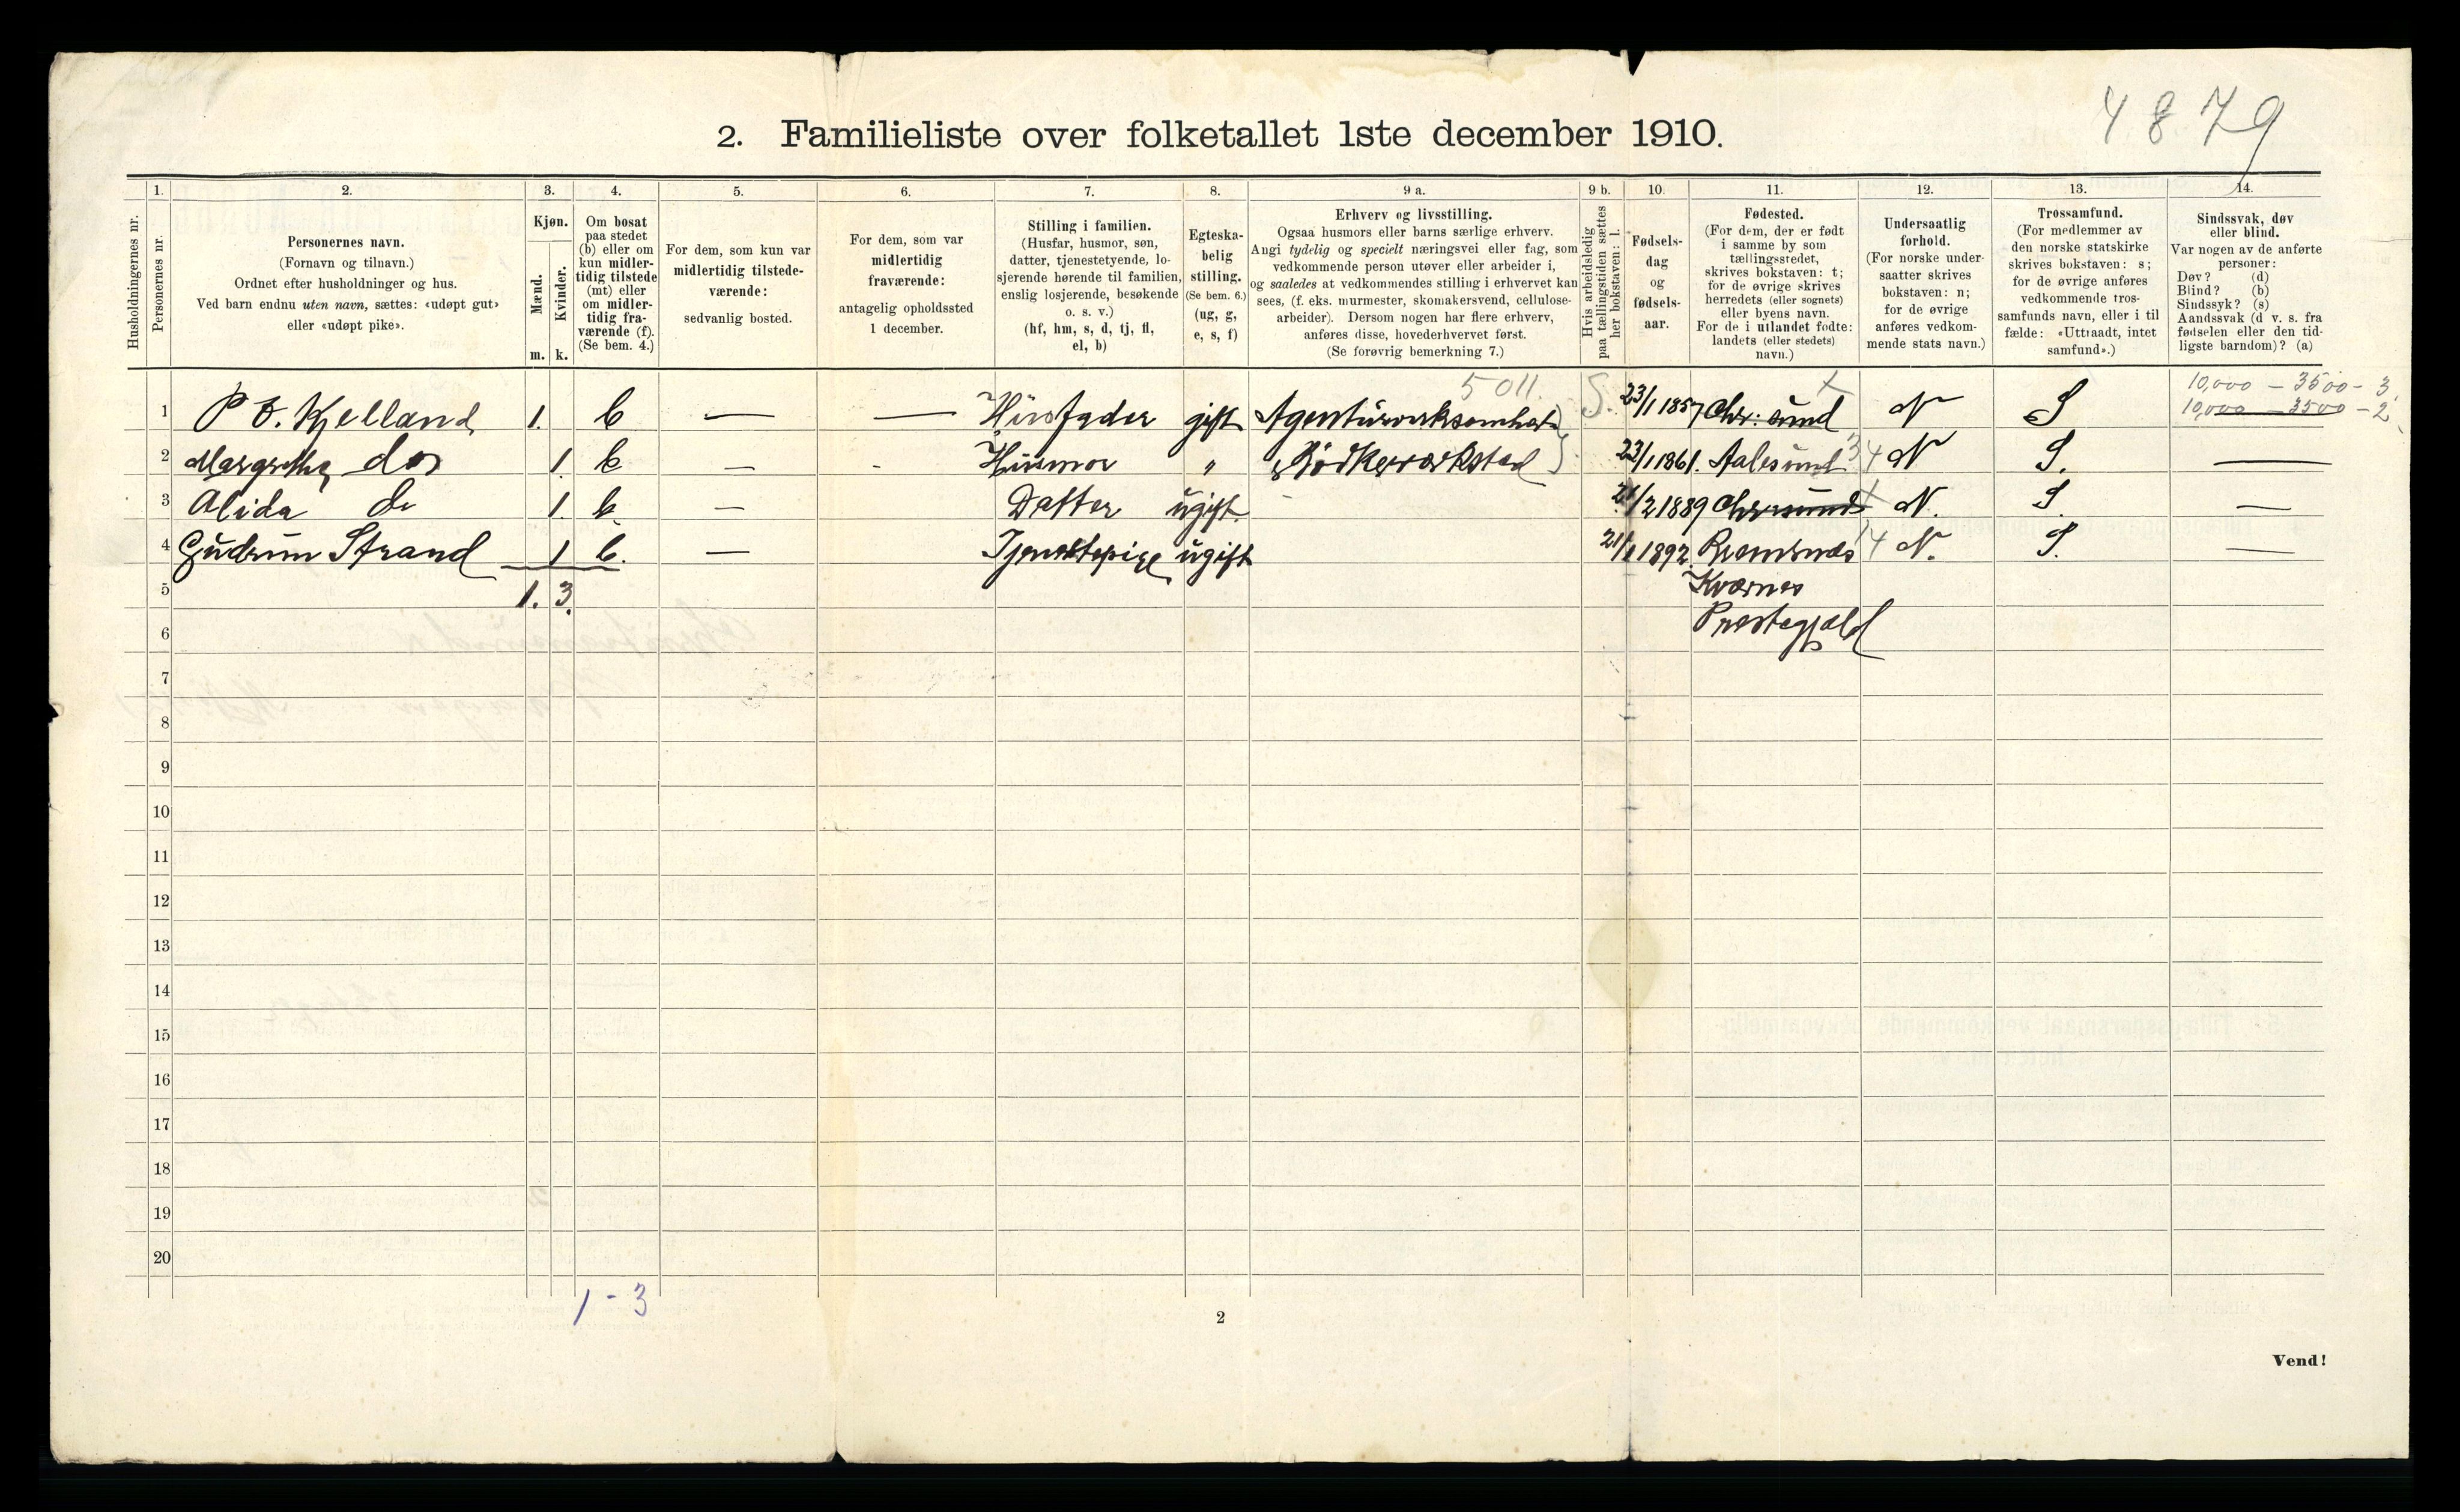 4879
2. Familieliste over folketallet 1ste december 1910.
1. 2. 3. 4. 5. 6. 7. 8. 9 a. 9 b. 10. 11. 12. 13. 14.
Husholdningernes nr.
Personernes nr.
Personernes navn.
(Fornavn og tilnavn.)
Ordnet efter husholdninger og hus.
Ved barn endnu uten navn, sættes: «udøpt gut»
eller «udøpt pike».
Kjøn.
Mænd.
Kvinder.
m. k.
Om bosat
paa stedet
(b) eller om
kun midler-
tidig tilstede
(mt) eller
om midler-
tidig fra-
værende (f).
(Se bem. 4.)
For dem, som kun var
midlertidig tilstede-
værende:
sedvanlig bosted.
For dem, som var
midlertidig
fraværende:
antagelig opholdssted
1 december.
Stilling i familien.
(Husfar, husmor, søn,
datter, tjenestetyende, lo-
sjerende hørende til familien,
enslig losjerende, besøkende
o. s. v.)
(hf, hm, s, d, tj, fl,
el, b)
Egteska-
belig
stilling.
(Se bem. 6.)
(ug, g,
e, s, f)
Erhverv og livsstilling.
Ogsaa husmors eller barns særlige erhverv.
Angi tydelig og specielt næringsvei eller fag, som
vedkommende person utøver eller arbeider i,
og saaledes at vedkommendes stilling i erhvervet kan
sees, (f. eks. murmester, skomakersvend, cellulose-
arbeider). Dersom nogen har flere erhverv,
anføres disse, hovederhvervet først.
(Se forøvrig bemerkning 7.)
Hvis arbeidsledig
paa tællingstiden sættes
her bokstaven: l.
Fødsels-
dag
og
fødsels-
aar.
Fødested.
(For dem, der er født
i samme by som
tællingsstedet,
skrives bokstaven: t;
for de øvrige skrives
herredets (eller sognets)
eller byens navn.
For de i utlandet fødte:
landets (eller stedets)
navn.)
Undersaatlig
forhold.
(For norske under-
saatter skrives
bokstaven: n;
for de øvrige
anføres vedkom-
mende stats navn.)
Trossamfund.
(For medlemmer av
den norske statskirke
skrives bokstaven: s;
for de øvrige anføres
vedkommende tros-
samfunds navn, eller i til
fælde: «Uttraadt, intet
samfund».)
Sindssvak, døv
eller blind.
Var nogen av de anførte
personer:
Døv? (d)
Blind? (b)
Sindssyk? (s)
Aandssvak (d v. s. fra
fødselen eller den tid-
ligste barndom)? (a)
5011. 10,000 — 3500 - 3
1 Kjelland 1. b — — Husfader gift S. 23/1 1857 Chr: sund N S 10,000 — 3500 - 2
2 Margrethe do 1. b — - Husmor " Bødkerværksted 23/1 1861. Aalesund N S. —
3 Alida do 1. b. — Datter ugift /2 1889 Chrsund N. S. —
4 Gudrun Strand 1 b. — Tjenestepige ugift 1892. N. S. —
5 1. 3. Kværnes
6 Præstegjæld
7
8
9
10
11
12
13
14
15
16
17
18
19
20
1 - 3
2
Vend!